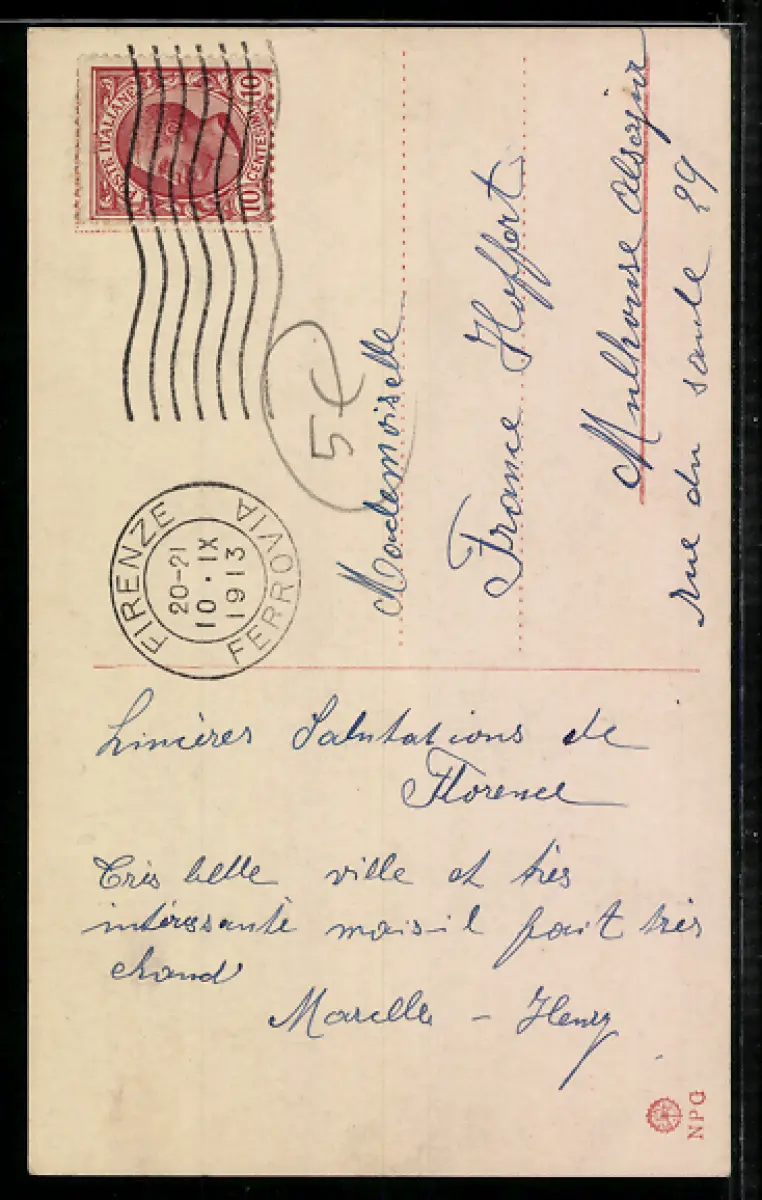 POSTE ITALIANE
10 CENTESIMI 10
FIRENZE
20-21
10·IX
1913
FERROVIA
5€
Mademoiselle
France Hoffert
Mulhouse Alsace
rue du saule 29
Sincères Salutations de
Florence
Très belle ville et très
intéressante mais il fait très
chaud
Marcelle - Henry
NPG